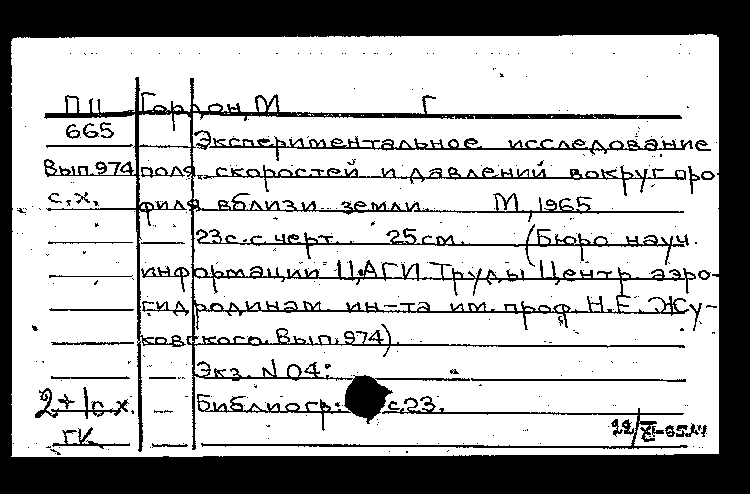 П 11 Гордон, М Г
665 Экспериментальное исследование
Вып.974 поля скоростей и давлений вокруг про-
с.х. филя вблизи земли. М, 1965
23с. с черт. 25см. (Бюро науч.
информации ЦАГИ. Труды Центр. аэро-
гидродинам. ин-та им. проф. Н.Е. Жу-
ковского. Вып. 974).
Экз. N 04:
2+1с.х. Библиогр: с.23.
ГК 22/XI-65